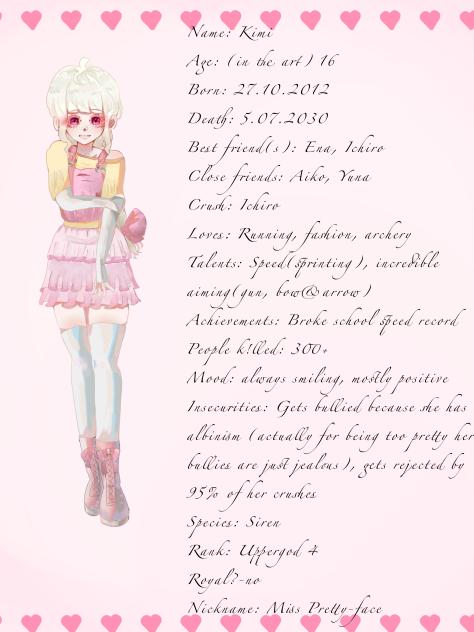 Name: Kimi
Age: (in the art) 16
Born: 27.10.2012
Death: 5.07.2030
Best friend(s): Ena, Ichiro
Close friends: Aiko, Yuna
Crush: Ichiro
Loves: Running, fashion, archery
Talents: Speed(sprinting), incredible
aiming(gun, bow@arrow)
Achievements: Broke school speed record
People k!lled: 300+
Mood: always smiling, mostly positive
Insecurities: Gets bullied because she has
albinism (actually for being too pretty her
bullies are just jealous), gets rejected by
95% of her crushes
Species: Siren
Rank: Uppergod 4
Royal?-no
Nickname: Miss Pretty-face